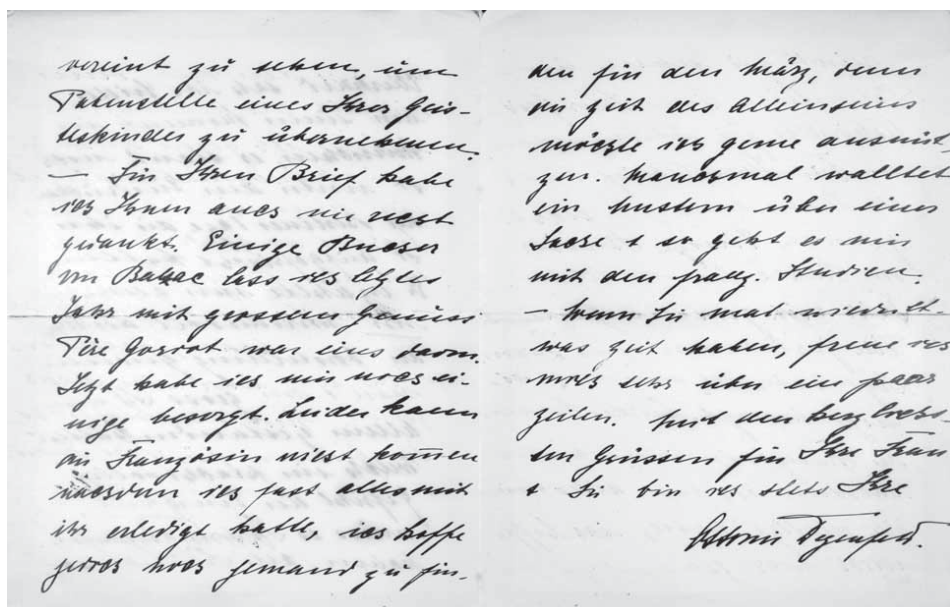 vereint zu sehen, um
Patenstelle eines Ihrer Geis-
teskindes zu übernehmen.
— Für Ihren Brief habe
ich Ihnen auch nie recht
gedankt. Einige Buecher
von Balzac lass ich letztes
Jahr mit grossem Genuss
Père Goriot war eines davon.
Jetzt habe ich mir noch ei-
nige besorgt. Leider kann
die Französin nicht kommen
nachdem ich fast alles mit
ihr erledigt hatte, ich hoffe
jedoch noch jemand zu fin-
den für den März, denn
die Zeit des Alleinseins
möchte ich gerne ausnüt-
zen. Manchmal waltet
ein Unstern über einer
Sache + so geht es mir
mit den franz. Studien.
— Wenn Sie mal wieder et-
was Zeit haben, freue ich
mich sehr über ein paar
Zeilen. Mit den herzlichs-
ten Grüssen für Ihre Frau
+ Sie bin ich stets Ihre
Degenfeld.